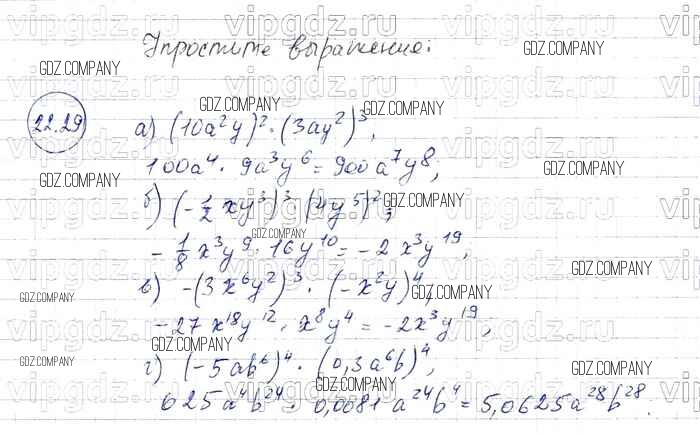 Упростите выражение:
22.29
а) (10a²y)² · (3ay²)³,
100a⁴ · 9a³y⁶ = 900a⁷y⁸;
б) (-1/2 xy³)³ · (4y⁵)²,
-1/8 x³y⁹ · 16y¹⁰ = -2x³y¹⁹,
в) -(3x⁶y²)³ · (-x²y)⁴,
-27x¹⁸y¹² · x⁸y⁴ = -2x³y¹⁹;
г) (-5ab⁶)⁴ · (0,3a⁶b)⁴,
625a⁴b²⁴ · 0,0081a²⁴b⁴ = 5,0625a²⁸b²⁸.